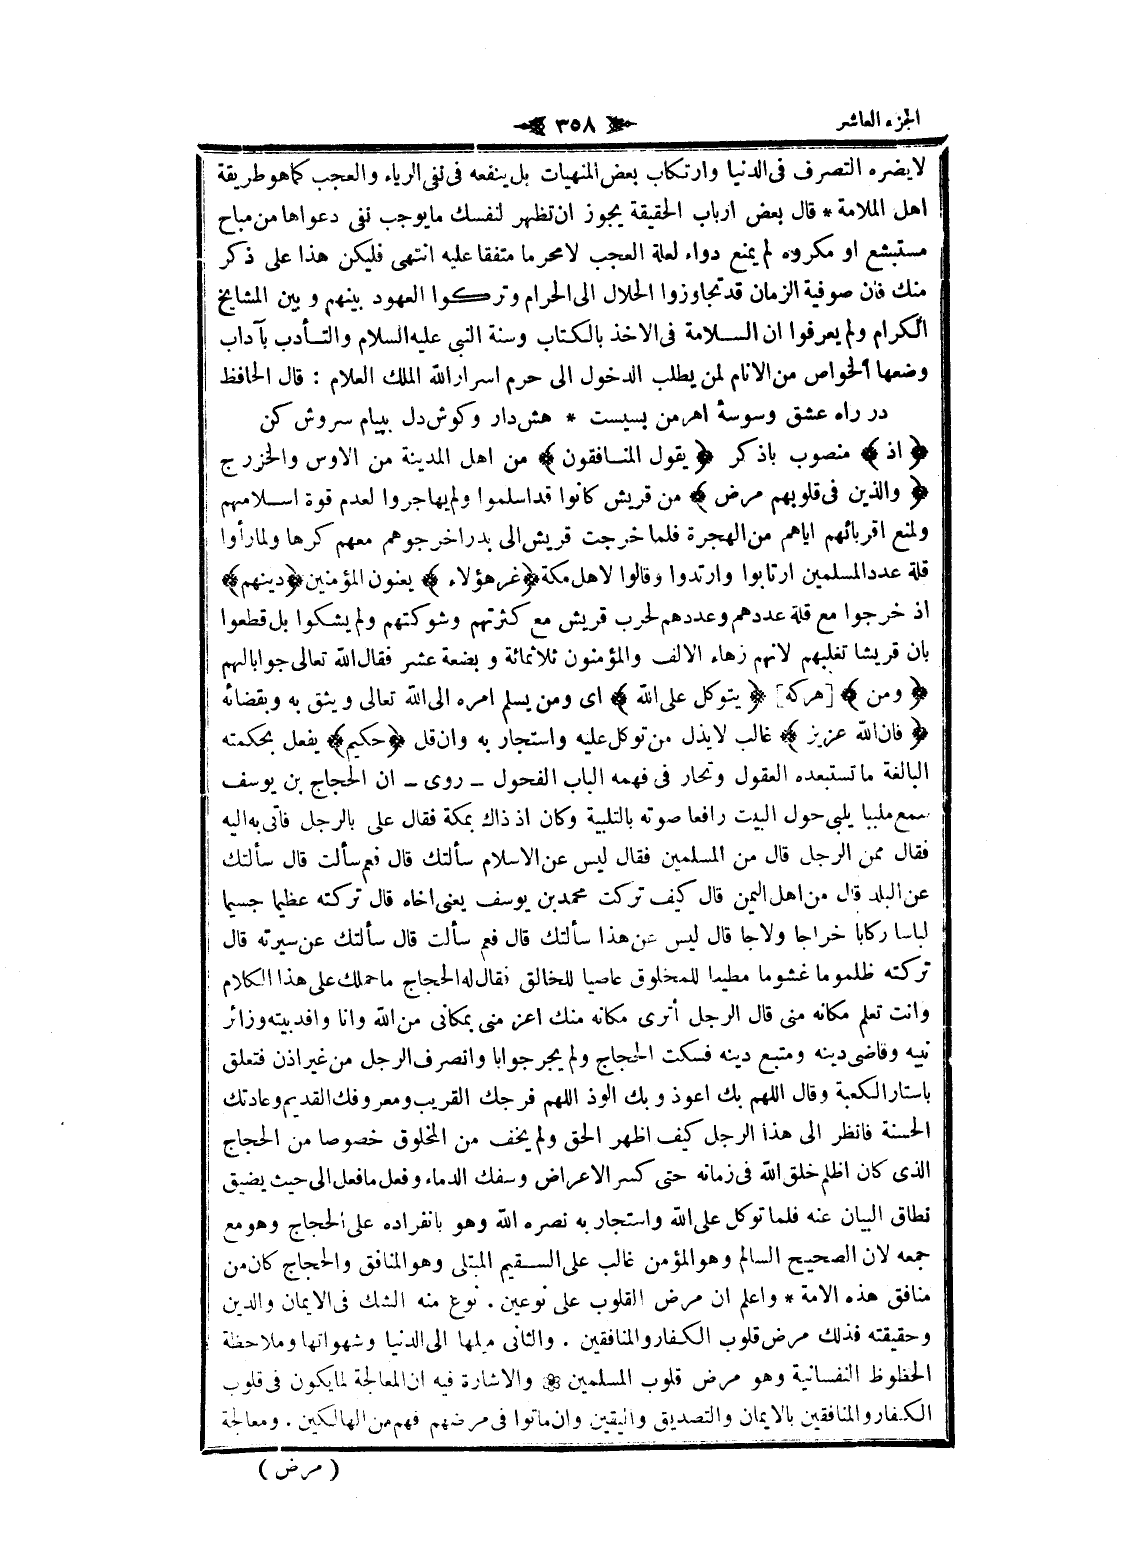 الجزء العاشر
٣٥٨
لا يضره التصرف فى الدنيا وارتكاب بعض المنهيات بل ينفعه فى نفى الرياء والعجب كما هو طريقة
اهل الملامة * قال بعض ارباب الحقيقة يجوز ان تظهر لنفسك ما يوجب نفى دعواها من مباح
مستبشع او مكروه لم يمنع دواء لعلة العجب لا محرما متفقا عليه انتهى فليكن هذا على ذكر
منك فان صوفية الزمان قد تجاوزوا الحلال الى الحرام وتركوا العهود بينهم وبين المشايخ
الكرام ولم يعرفوا ان السلامة فى الاخذ بالكتاب وسنة النبى عليه السلام والتأدب بآداب
وضعها الخواص من الانام لمن يطلب الدخول الى حرم اسرار الله الملك العلام : قال الحافظ
در راه عشق وسوسۀ اهر من بسيست * هش دار وكوش دل ببيام سروش كن
﴿ اذ ﴾ منصوب باذكر ﴿ يقول المنافقون ﴾ من اهل المدينة من الاوس والخزرج
﴿ والذين فى قلوبهم مرض ﴾ من قريش كانوا قد اسلموا ولم يهاجروا لعدم قوة اسلامهم
ولمنع اقربائهم اياهم من الهجرة فلما خرجت قريش الى بدر اخرجوهم معهم كرها ولما رأوا
قلة عدد المسلمين ارتابوا وارتدوا وقالوا لاهل مكة ﴿ غر هؤلاء ﴾ يعنون المؤمنين ﴿ دينهم ﴾
اذ خرجوا مع قلة عددهم وعددهم لحرب قريش مع كثرتهم وشوكتهم ولم يشكوا بل قطعوا
بان قريشا تغلبهم لانهم زهاء الالف والمؤمنون ثلاثمائة وبضعة عشر فقال الله تعالى جوابا لهم
﴿ ومن ﴾ [هركه] ﴿ يتوكل على الله ﴾ اى ومن يسلم امره الى الله تعالى ويثق به وبقضائه
﴿ فان الله عزيز ﴾ غالب لا يذل من توكل عليه واستجار به وان قل ﴿ حكيم ﴾ يفعل بحكمته
البالغة ما تستبعده العقول وتحار فى فهمه الباب الفحول ـ روى ـ ان الحجاج بن يوسف
سمع ملبيا يلبى حول البيت رافعا صوته بالتلبية وكان اذ ذاك بمكة فقال على بالرجل فاتى به اليه
فقال ممن الرجل قال من المسلمين فقال ليس عن الاسلام سألتك قال فعم سألت قال سألتك
عن البلد قال من اهل اليمن قال كيف تركت محمد بن يوسف يعنى اخاه قال تركته عظيما جسيما
لباسا ركابا خراجا ولاجا قال ليس عن هذا سألتك قال فعم سألت قال سألتك عن سيرته قال
تركته ظلوما غشوما مطيعا للمخلوق عاصيا للخالق فقال له الحجاج ما حملك على هذا الكلام
وانت تعلم مكانه منى قال الرجل أترى مكانه منك اعز منى بمكانى من الله وانا وافد بيته وزائر
نبيه وقاضى دينه ومتبع دينه فسكت الحجاج ولم يحر جوابا وانصرف الرجل من غير اذن فتعلق
باستار الكعبة وقال اللهم بك اعوذ وبك الوذ اللهم فرجك القريب ومعروفك القديم وعادتك
الحسنة فانظر الى هذا الرجل كيف اظهر الحق ولم يخف من المخلوق خصوصا من الحجاج
الذى كان اظلم خلق الله فى زمانه حتى كسر الاعراض وسفك الدماء وفعل ما فعل الى حيث يضيق
نطاق البيان عنه فلما توكل على الله واستجار به نصره الله وهو بانفراده على الحجاج وهو مع
جمعه لان الصحيح السالم وهو المؤمن غالب على السقيم المبتلى وهو المنافق والحجاج كان من
منافق هذه الامة * واعلم ان مرض القلوب على نوعين . نوع منه الشك فى الايمان والدين
وحقيقته فذلك مرض قلوب الكفار والمنافقين . والثانى ميلها الى الدنيا وشهواتها وملاحظة
الحظوظ النفسانية وهو مرض قلوب المسلمين ۞ والاشارة فيه ان المعالجة لما يكون فى قلوب
الكفار والمنافقين بالايمان والتصديق واليقين وان ماتوا فى مرضهم فهم من الهالكين . ومعالجة
( مرض )